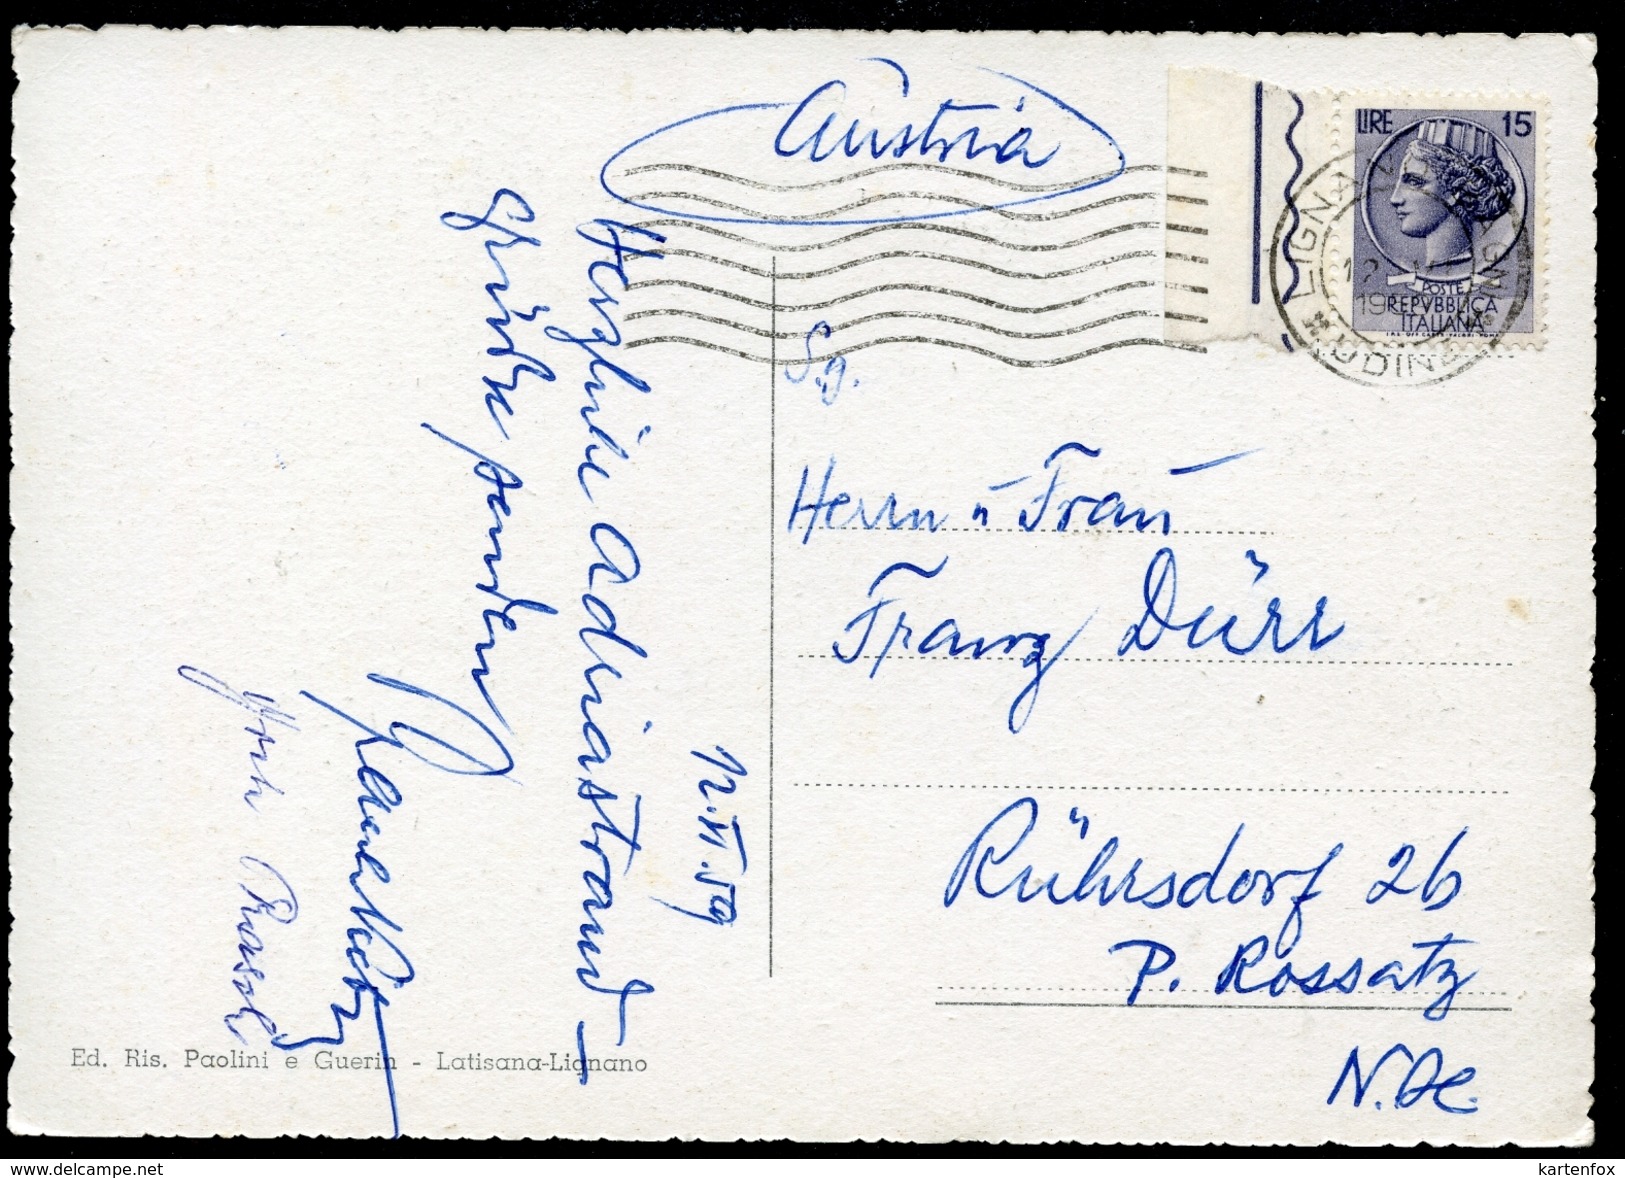 Austria
LIRE 15
POSTE
REPVBBLICA
ITALIANA
LIGNANO
UDINE
12
19
S.g.
Herrn u Frau
Franz Dürr
Rührsdorf 26
P. Rossatz
N.Oe.
12.VI.59
Herzliche Adriastrand-
grüße senden
Ed. Ris. Paolini e Guerin - Latisana-Lignano
www.delcampe.net
kartenfox